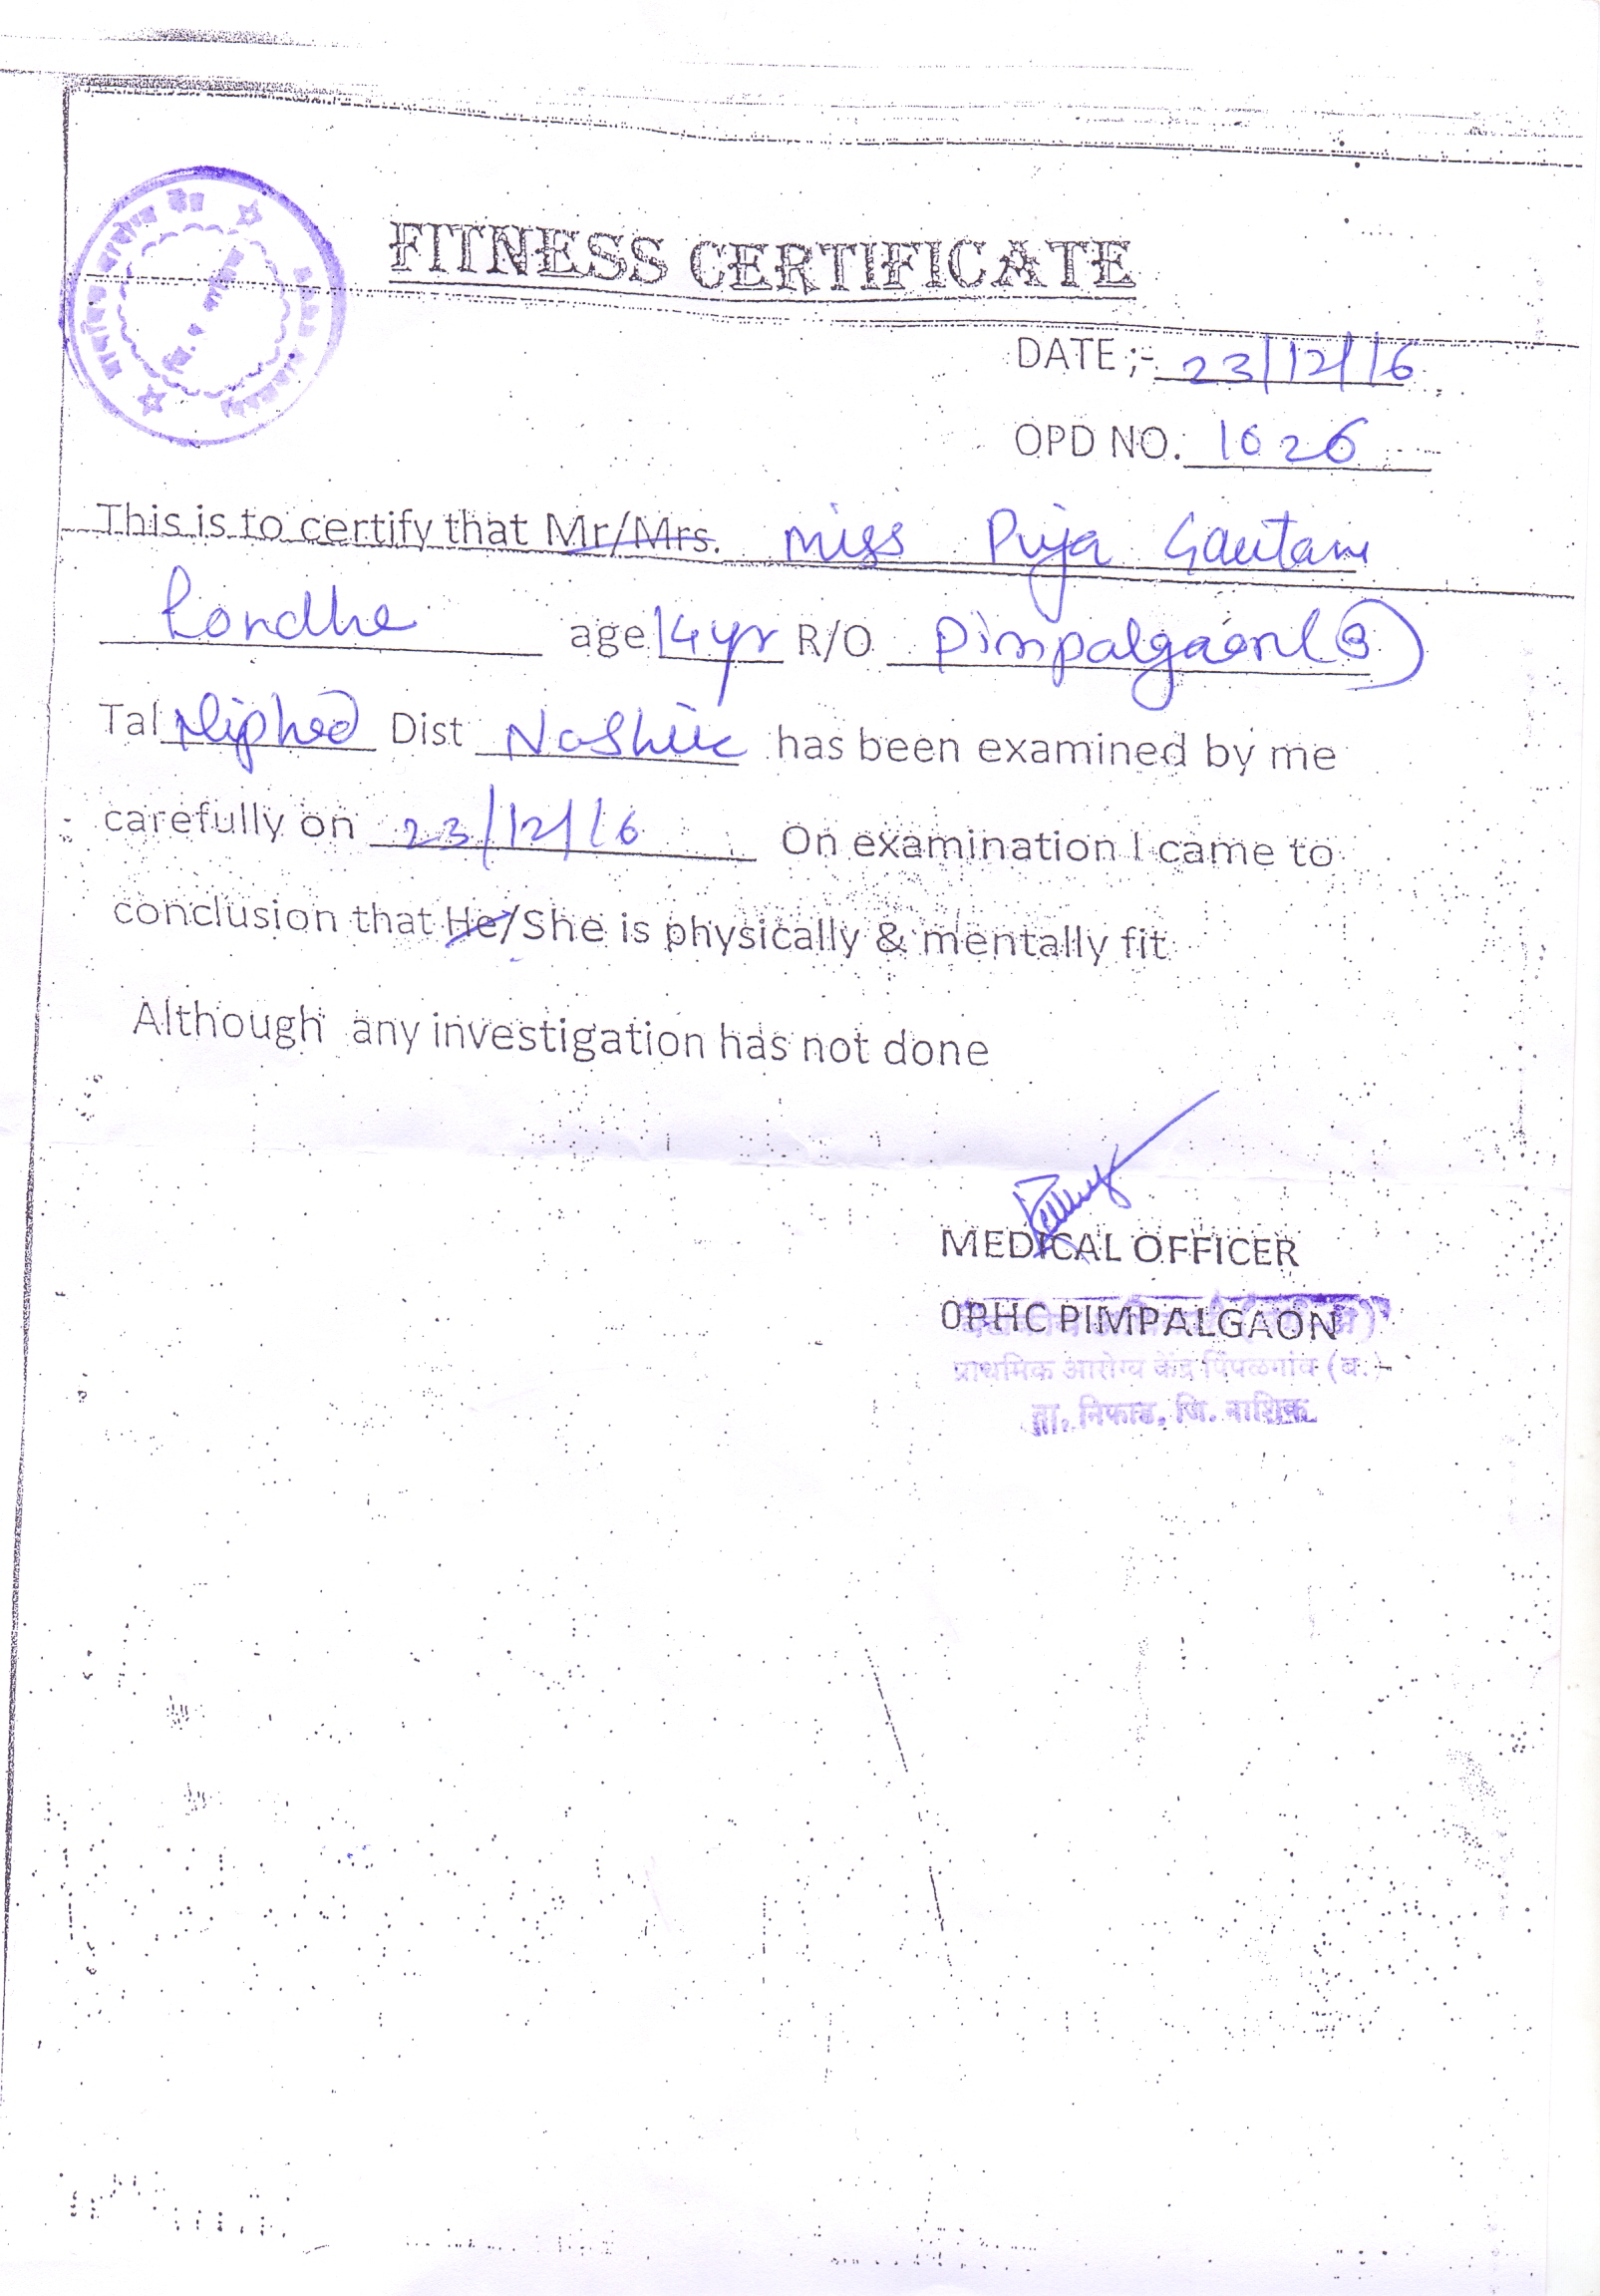 FITNESS CERTIFICATE
DATE ;- 23/12/16
OPD NO. 1026
This is to certify that Mr/Mrs. Miss Puja Gautam
Londhe age 14 yr R/O Pimpalgaon (B)
Tal Niphad Dist Nashik has been examined by me
carefully on 23/12/16 On examination I came to
conclusion that He/She is physically & mentally fit
Although any investigation has not done
MEDICAL OFFICER
OPHC PIMPALGAON
प्राथमिक आरोग्य केंद्र पिंपळगांव (ब.)
ता. निफाड, जि. नाशिक